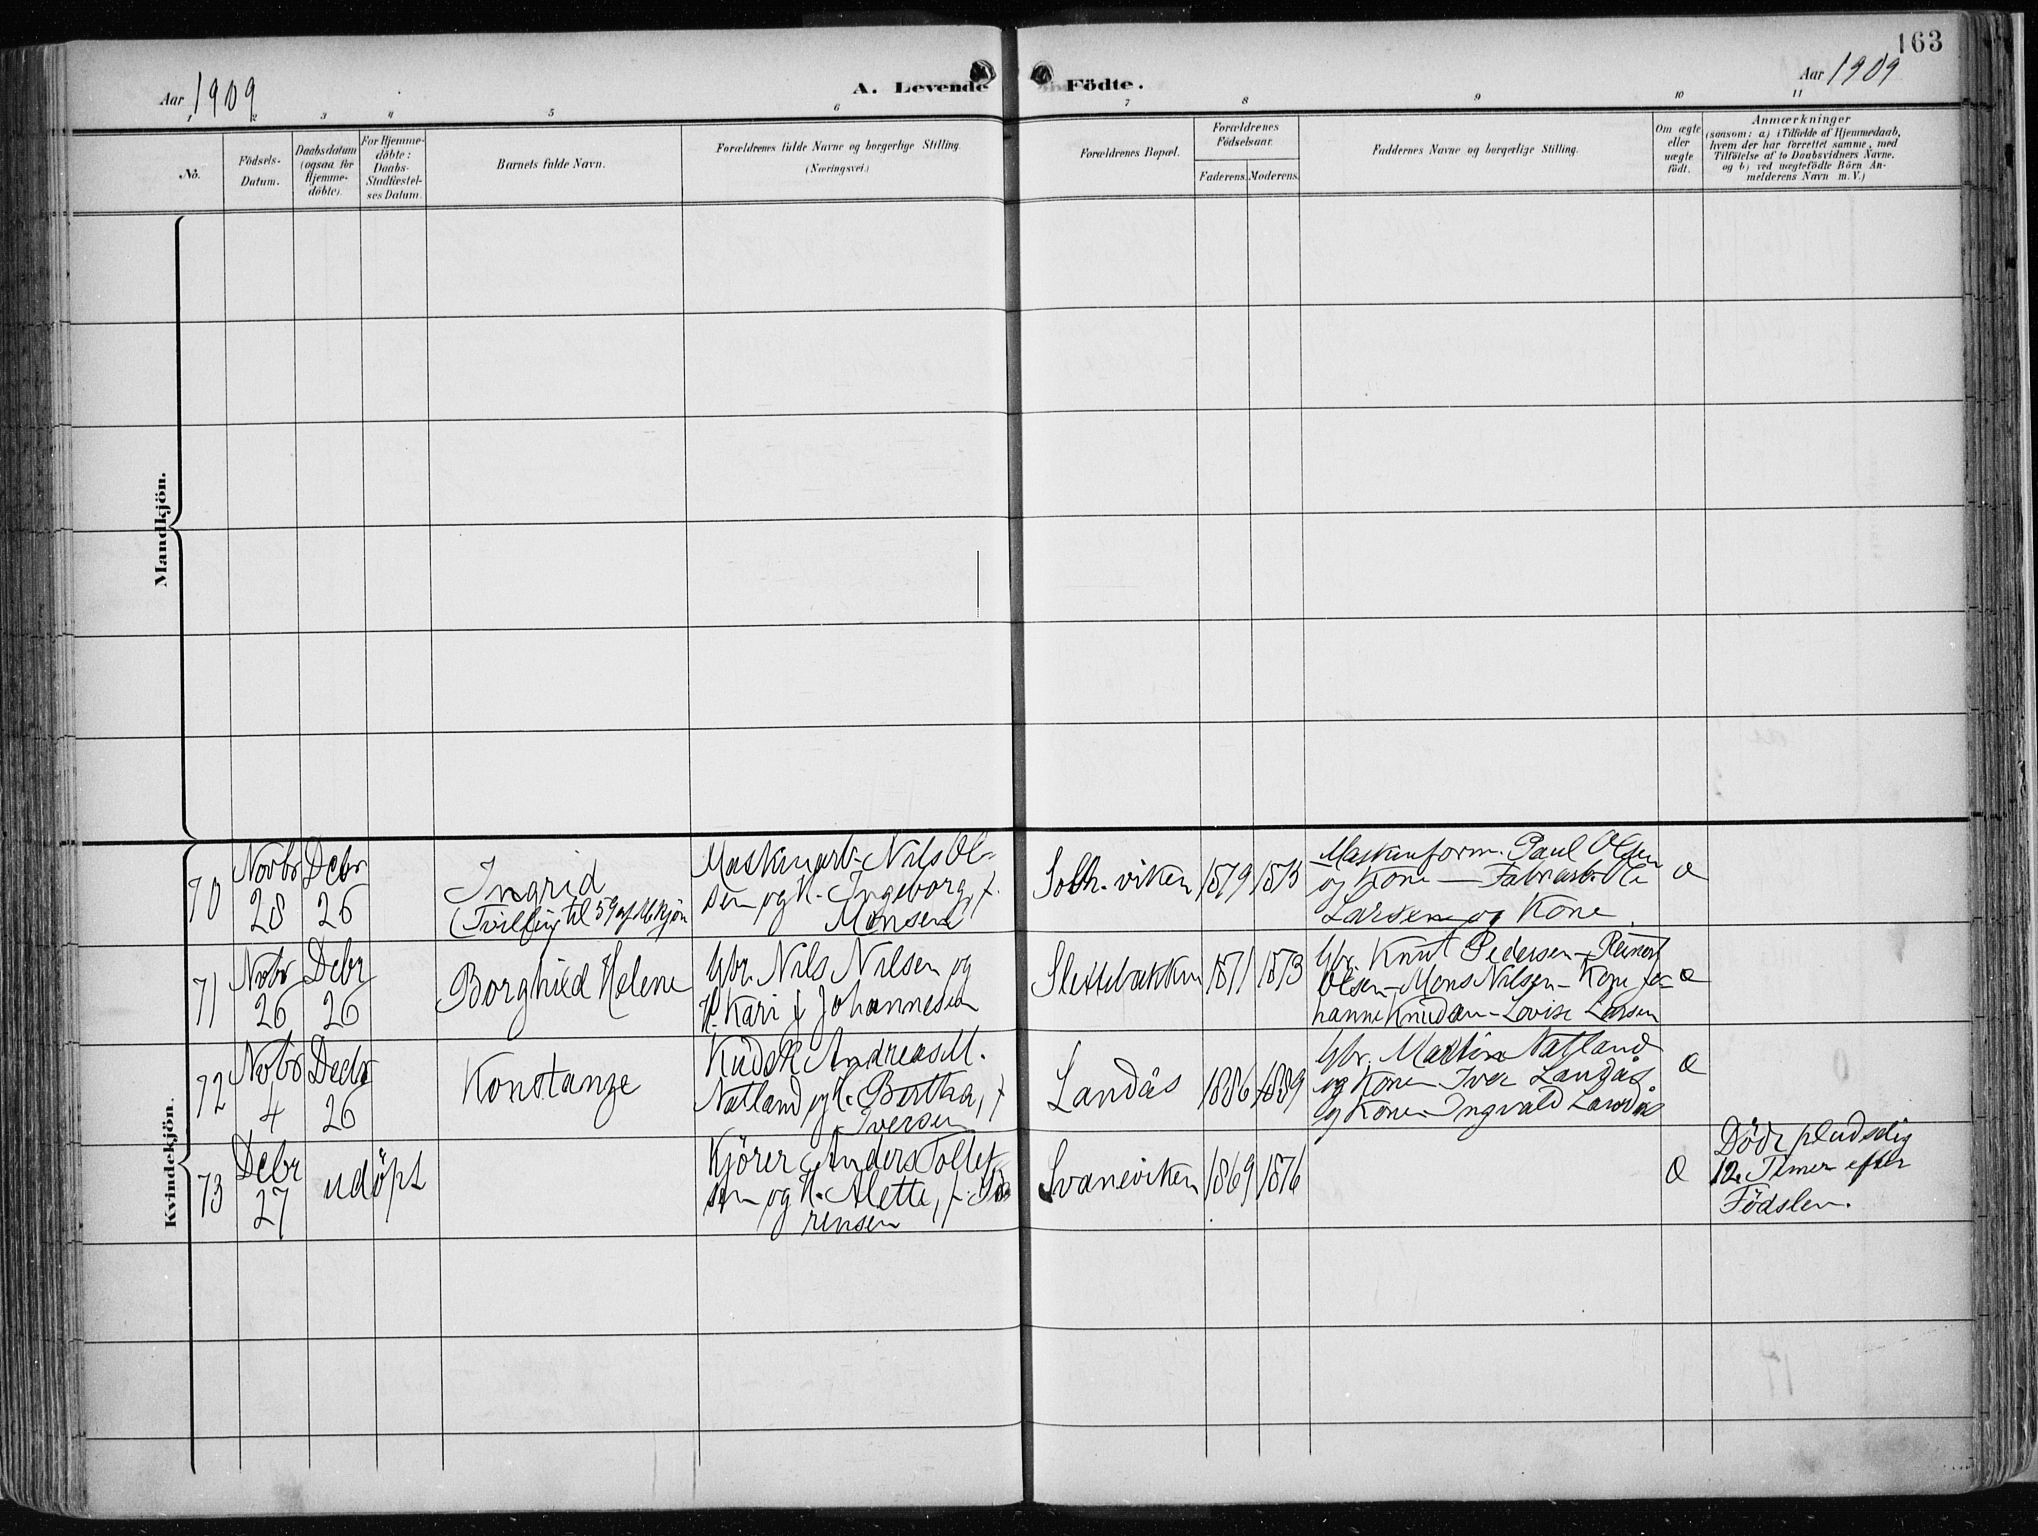 163
Aar 1909
A. Levende Födte.
Aar 1909
1 2 3 4 5 6 7 8 9 10 11
No.
Födsels-
Datum.
Daabsdatum
(ogsaa for
Hjemme-
döbte).
For Hjemme-
döbte:
Daabs-
Stadfæstel-
ses Datum.
Barnets fulde Navn.
Forældrenes fulde Navne og borgerlige Stilling.
(Næringsvei.)
Forældrenes Bopæl.
Forældrenes
Födselsaar.
Faderens. Moderens.
Faddernes Navne og borgerlige Stilling.
Om ægte
eller
uægte
födt.
Anmærkninger
(saasom: a) i Tilfælde af Hjemmedaab,
hvem der har forrettet samme, med
Tilföielse af to Daabsvidners Navne.
og b) ved uægtefödte Börn An-
melderens Navn m. V.)
Mandkjön.
Kvindekjön.
70
Novbr
28
Debr
26
Ingrid
(Tvilling til 59 af Mkjøn
Maskinarb. Nils Ol-
sen og H. Ingeborg, f.
Monsen
Solh. viken
1879
1875
Maskinform. Paul Olsen
og Kone — Fabrikarb. Ole
Larsen og Kone.
Æ
71
Nobr
26
Debr
26
Borghild Helene
Gbr. Nils Nilsen og
H. Kari f Johannesen
Slettebakken
1871
1873
Gbr. Knut Pedersen - Reinert
Olsen - Mons Nilsen - Kone Jo-
hanne Knudsen - Lovise Larsen
Æ
72
Nobr
4
Debr
26
Konstanze
Kudsk Andreas M.
Natland og H. Bertha, f
Iversen
Landås
1886
1889
Gbr. Martin Natland
og Kone - Iver Landås
og Kone - Ingvald Landås
Æ
73
Debr
27
udöpt
Kjörer Anders Tollef
sen og H. Alette, f. Sö
rensen
Svaneviken
1869
1876
Æ
Död pludselig
12 Timer efter
Födslen.